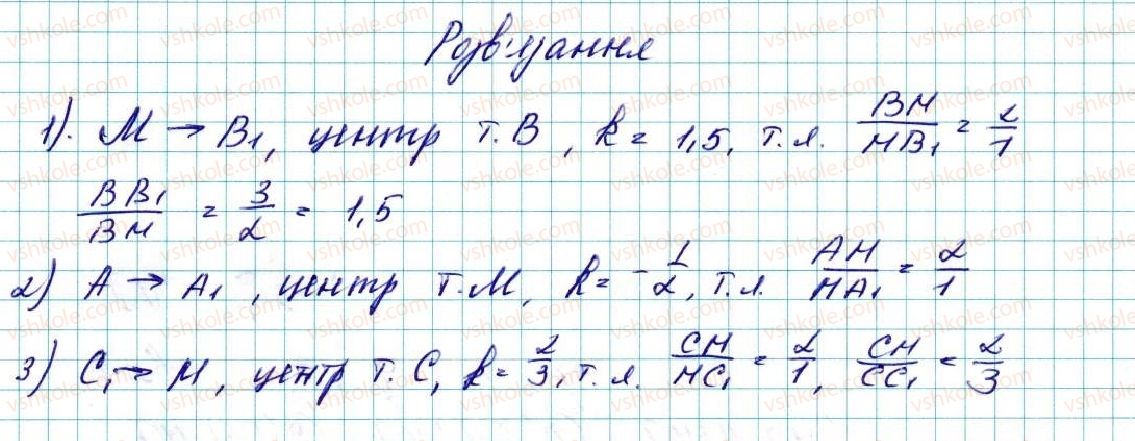 Розв'язання
1). M → B₁, центр т. B, k = 1,5, т.я. BM/MB₁ = 2/1
BB₁/BM = 3/2 = 1,5
2) A → A₁, центр т. M, k = -1/2, т.я. AM/MA₁ = 2/1
3) C₁ → M, центр т. C, k = 2/3, т.я. CM/MC₁ = 2/1, CM/CC₁ = 2/3